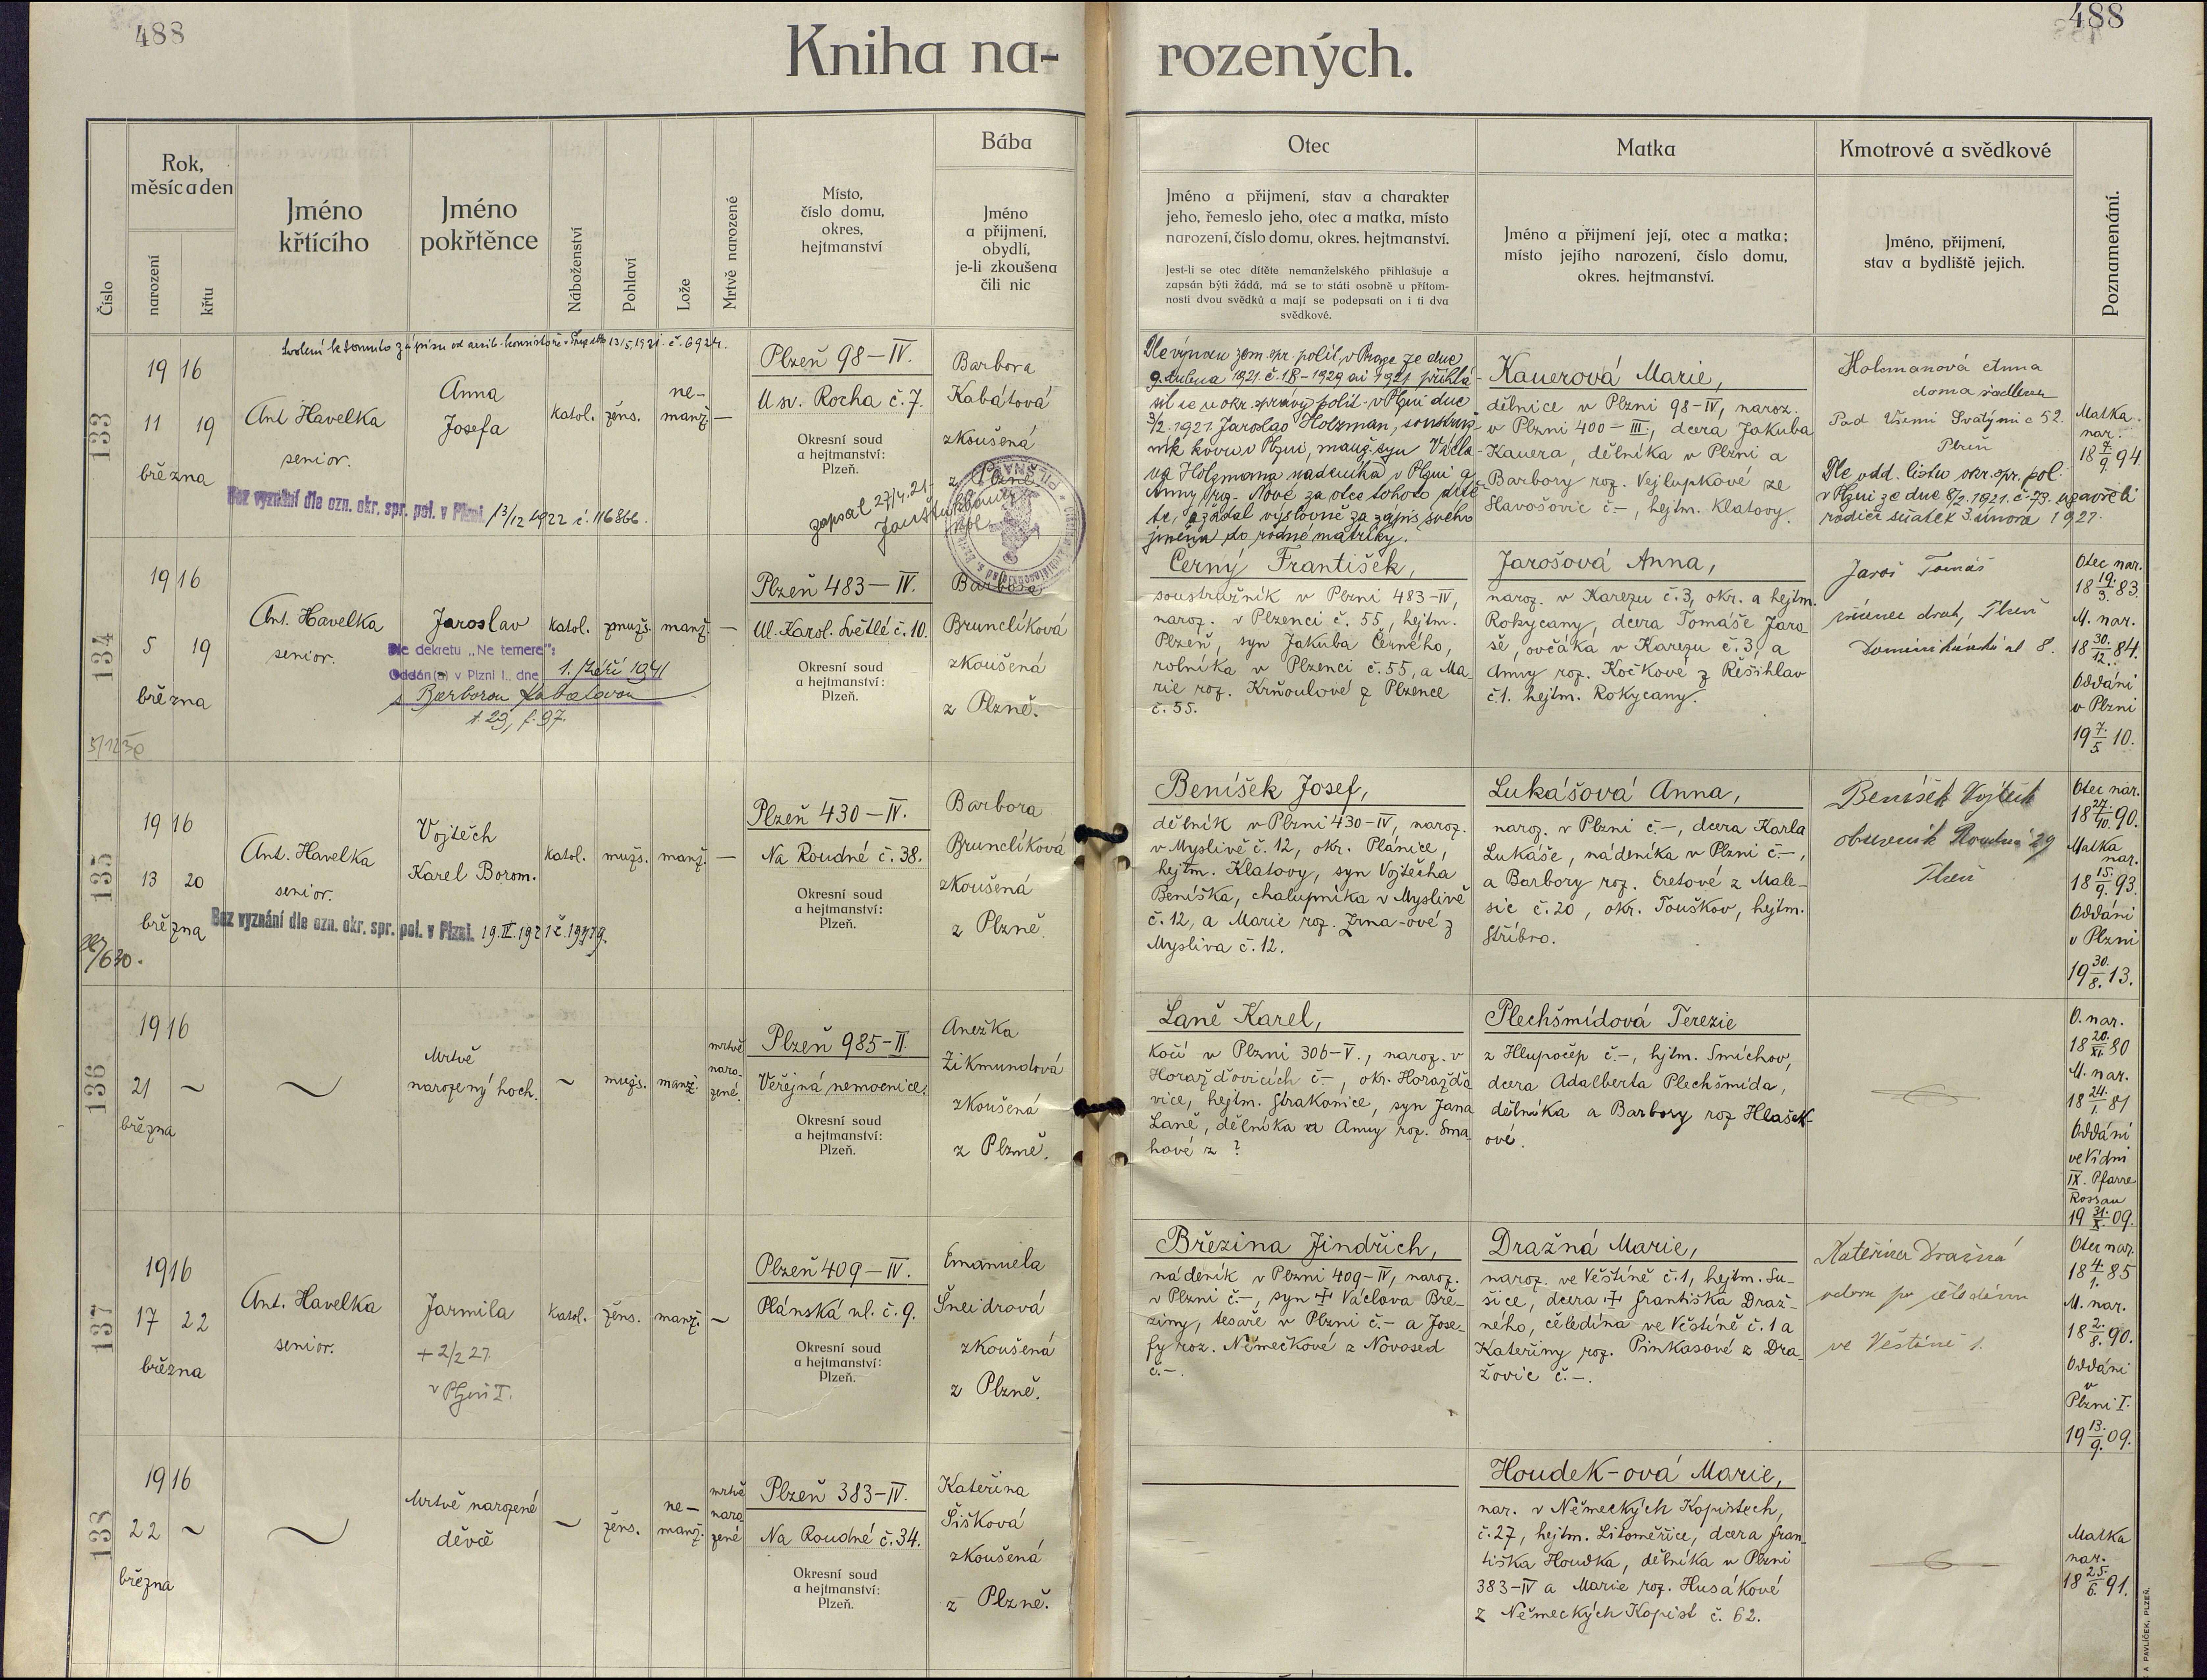 488
488
Kniha na-
rozených.
Číslo
Rok,
měsíc a den
narození
křtu
Jméno
křtícího
Jméno
pokřtěnce
Náboženství
Pohlaví
Lože
Mrtvě narozené
Místo,
číslo domu,
okres,
hejtmanství
Bába
Jméno
a přijmení,
obydlí,
je-li zkoušena
čili nic
Otec
Jméno a přijmení, stav a charakter
jeho, řemeslo jeho, otec a matka, místo
narození, číslo domu, okres. hejtmanství.
Jest-li se otec dítěte nemanželského přihlašuje a
zapsán býti žádá, má se to státi osobně u přítom-
nosti dvou svědků a mají se podepsati on i ti dva
svědkové.
Matka
Jméno a přijmení její, otec a matka;
místo jejího narození, číslo domu,
okres. hejtmanství.
Kmotrové a svědkové
Jméno, přijmení,
stav a bydliště jejich.
Poznamenání.
133
1916
11 19
března
Svolení k tomuto zápisu od arcib. konsistoře v Praze 13/5.1921. č. 6924.
Ant Havelka
senior.
Anna
Josefa
katol.
žens.
ne-
manž.
—
Bez vyznání dle ozn. okr. spr. pol. v Plzni 13/12 1922 č. 116866.
Plzeň 98–IV.
U sv. Rocha č. 7.
Okresní soud
a hejtmanství:
Plzeň.
zapsal 27/4.21
Barbora
Kabátová
zkoušená
z Plzně
Dle výnosu zem. spr. polit. v Praze ze dne
9. dubna 1921. č. 18-1929 ai 1921 přihlá-
sil se u okr. správy polit. v Plzni dne
3/2. 1921 Jaroslav Holzman, soustruž-
ník kovu v Plzni, manž. syn Václa-
va Holzmana nádeníka v Plzni a
Anny roz. Nové za otce tohoto dítě-
te, a žádal výslovně za zápis svého
jména do rodné matriky.
Kauerová Marie,
dělnice v Plzni 98–IV, naroz.
v Plzni 400–III., dcera Jakuba
Kauera, dělníka v Plzni a
Barbory roz. Vejlupkové ze
Slavošovic č–, hejtm. Klatovy.
Holzmanová Anna
doma
Pod Všemi Svatými č 52.
Plzeň
Dle odd. listu okr. spr. pol.
v Plzni ze dne 8/2. 1921. č. 73. uzavřeli
rodiče sňatek 3. února 1921.
Matka
nar.
18 7/9 94.
134
1916
5 19
března
5/12 39
Ant. Havelka
senior.
Jaroslav
katol.
mužs.
manž.
—
Dle dekretu „Ne temere“:
Oddán(a) v Plzni I., dne 1. září 1941
s Barborou Kabátovou
t. 29, f. 97.
Plzeň 483–IV.
Ul. Karol. Světlé č. 10.
Okresní soud
a hejtmanství:
Plzeň.
Barbora
Brunclíková
zkoušená
z Plzně.
Černý František,
soustružník v Plzni 483–IV,
naroz. v Plzenci č. 55, hejtm.
Plzeň, syn Jakuba Černého,
rolníka v Plzenci č. 55, a Ma-
rie roz. Krňoulové z Plzence
č. 55.
Jarošová Anna,
naroz. v Karezu č. 3, okr. a hejtm.
Rokycany, dcera Tomáše Jaro-
še, ovčáka v Karezu č. 3, a
Anny roz. Kočkové z Řešihlav
č. 1. hejtm. Rokycany.
Jaroš Tomáš
Plzeň
Dominikánská ul 8.
Otec nar.
18 19./3. 83.
M. nar.
18 30./12. 84.
Oddáni
v Plzni
19 7./5. 10.
135
1916
13 20
března
Ant. Havelka
senior.
Vojtěch
Karel Borom.
katol.
mužs.
manž.
—
Bez vyznání dle ozn. okr. spr. pol. v Plzni. 19.II.1921 č. 19719.
Plzeň 430–IV.
Na Roudné č. 38.
Okresní soud
a hejtmanství:
Plzeň.
Barbora
Brunclíková
zkoušená
z Plzně.
Beníšek Josef,
dělník v Plzni 430–IV, naroz.
v Myslivě č. 12, okr. Plánice,
hejtm. Klatovy, syn Vojtěcha
Beníška, chalupníka v Myslivě
č. 12, a Marie roz. Zrna-ové z
Mysliva č. 12.
Lukášová Anna,
naroz. v Plzni č.–, dcera Karla
Lukáše, nádeníka v Plzni č.–,
a Barbory roz. Eretové z Male-
sic č. 20, okr. Touškov, hejtm.
Stříbro.
Beníšek Vojtěch
obuvník Roudná 29
Plzeň
Otec nar.
18 27./10. 90.
Matka
nar.
18 15./9. 93.
Oddáni
v Plzni
19 30./8. 13.
136
1916
21 ~
března
~
Mrtvě
narozený hoch.
~
mužs.
manž.
mrtvě
naro-
zené.
Plzeň 985–II.
Veřejná nemocnice.
Okresní soud
a hejtmanství:
Plzeň.
Anežka
Zikmundová
zkoušená
z Plzně.
Laně Karel,
kočí v Plzni 306–V., naroz. v
Horažďovicích č–, okr. Horažďo-
vice, hejtm. Strakonice, syn Jana
Laně, dělníka a Anny roz. Sma-
hové z ?
Plechšmídová Terezie
z Hlupočep č.–, hjtm. Smíchov,
dcera Adalberta Plechšmída,
dělníka a Barbory roz Hlašek-
ové.
O. nar.
18 20./XI. 80
M. nar.
18 24./1. 81
Oddáni
ve Vídni
IX. Pfarre
Rossau
19 31./X. 09.
137
1916
17 22
března
Ant. Havelka
senior.
Jarmila
+ 2/2 27.
v Plzni I.
katol.
žens.
manž.
~
Plzeň 409–IV.
Plánská ul. č. 9.
Okresní soud
a hejtmanství:
Plzeň.
Emanuela
Šneidrová
zkoušená
z Plzně.
Březina Jindřich,
nádeník v Plzni 409–IV, naroz.
v Plzni č.–, syn + Václava Bře-
ziny, tesaře v Plzni č.– a Jose-
fy roz. Němečkové z Novosed
č.–.
Dražná Marie,
naroz. ve Věštíně č. 1, hejtm. Su-
šice, dcera + Františka Draž-
ného, čeledína ve Věštíně č. 1 a
Kateřiny roz. Pinkasové z Dra-
žovic č.–.
Kateřina Dražná
vdova po čeledínu
ve Věštíně 1.
Otec nar.
18 4./1. 85
M. nar.
18 2./8. 90.
Oddáni
v
Plzni I.
19 13./9. 09.
138
1916
22 ~
března
~
Mrtvě narozené
děvče
~
žens.
ne-
manž.
mrtvě
naro-
zené
Plzeň 383–IV.
Na Roudné č. 34.
Okresní soud
a hejtmanství:
Plzeň.
Kateřina
Šišková
zkoušená
z Plzně.
Houdek-ová Marie,
nar. v Německých Kopistech,
č. 27, hejtm. Litoměřice, dcera Fran-
tiška Houdka, dělníka v Plzni
383–IV a Marie roz. Husákové
z Německých Kopist č. 62.
Matka
nar.
18 25./6. 91.
A PAVLÍČEK, PLZEŇ.